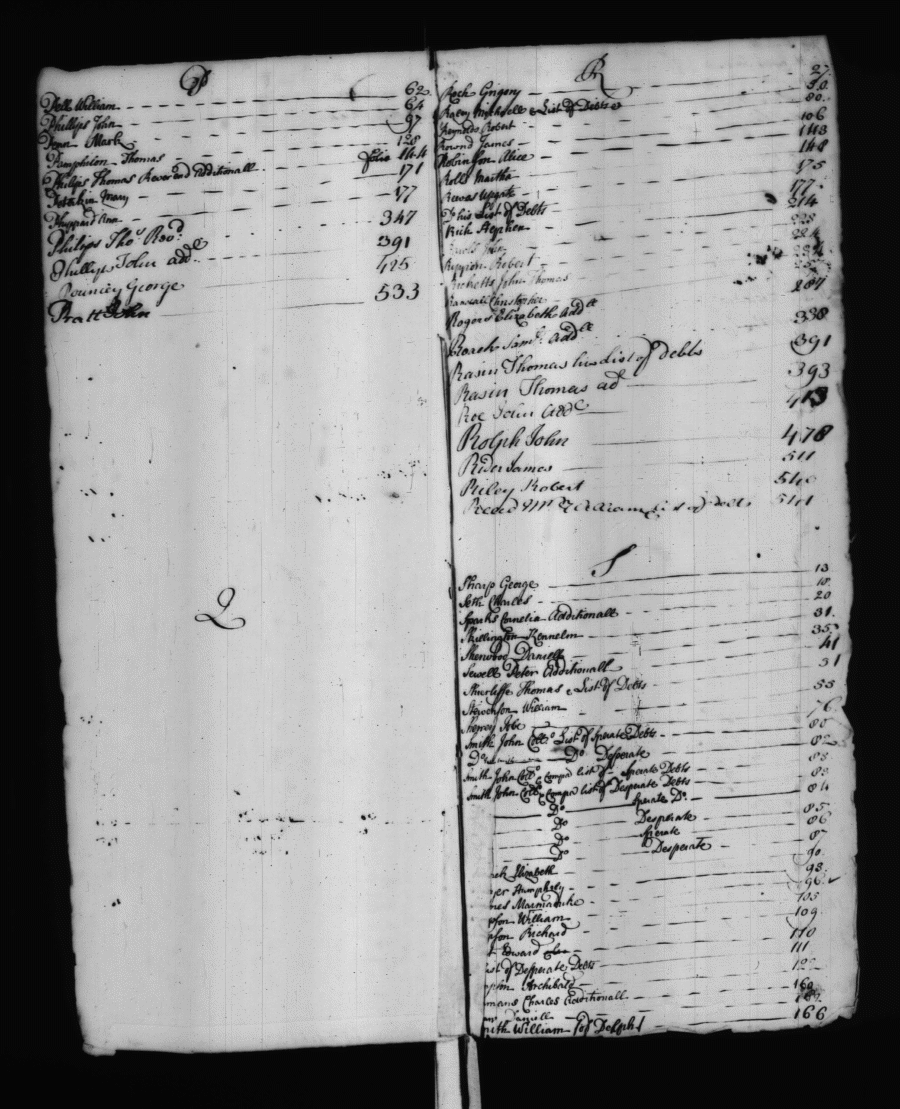 P
Dell William 62
Phillips John 64
Penn Mark 97
Pamphilon Thomas 128
Philips Thomas Reverend Additionall folio 144
Mary 171
Ann 177
Philips Tho.s Rev.d 347
Phillyps John add.l 391
Pouncey George 425
Pratt John 533
Q
R
Roch Gregory 27
Raley Michaell & List of Debts 30
Reynolds Robert 80
Round James 106
Robinson Alice 143
Rolls Martha 148
Reeves Upgate 175
D.o his List of Debts 177
Rich Stephen 214
John
Robert
Ricketts John Thomas
Randall Christopher
Rogers Elizabeth add.ll 287
Roach Sam.l add.ll 338
Rasin Thomas his list of debts 391
Rasin Thomas ad 393
Roe John add.l 413
Rolph John 478
Rider James 511
Riley Robert
Reed M.r William list of debts 541
S
Sharp George 13
Seth Charles 18
Sparks Cornelia Additionall 20
Skillington Kennelm 31
Sherwood Daniell 35
Sewell Peter Additionall 41
Shurliffe Thomas & List of Debts 51
Stevenson William 53
76
Smith John Coll.o List of Sperate Debts 80
D.o D.o Desperate 82
Smith John Coll.o & Comp.a list of Sperate Debts 83
Smith John Coll.o & Comp.a list of Desperate Debts 83
D.o Sperate D.o 84
D.o Desperate 85
D.o Sperate 86
D.o Desperate 87
Elizabeth 90
Humphrey 93
Marmaduke 96
William 105
Richard 109
Edward 110
List of Desperate Debts 111
Archibald
Charles Additionall 160
Daniell
Smith William of Dolph.s 166